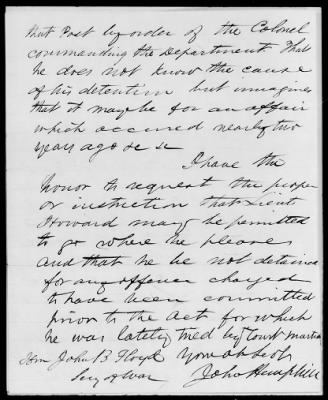 that Post by order of the Colonel
commanding the Department. That
he does not know the cause
of his detention but imagines
that it may be for an affair
which accured nearly two
years ago &c &c
I have the
honor to request the proper
or instruction that Lieut
Howard may be permitted
to go where he pleases
and that he be not detained
for any offence charged
to have been committed
prior to the act for which
he was lately tried by Court martial
Hon John B Floyd Your obt Sevt
Secy of War John Hemphill